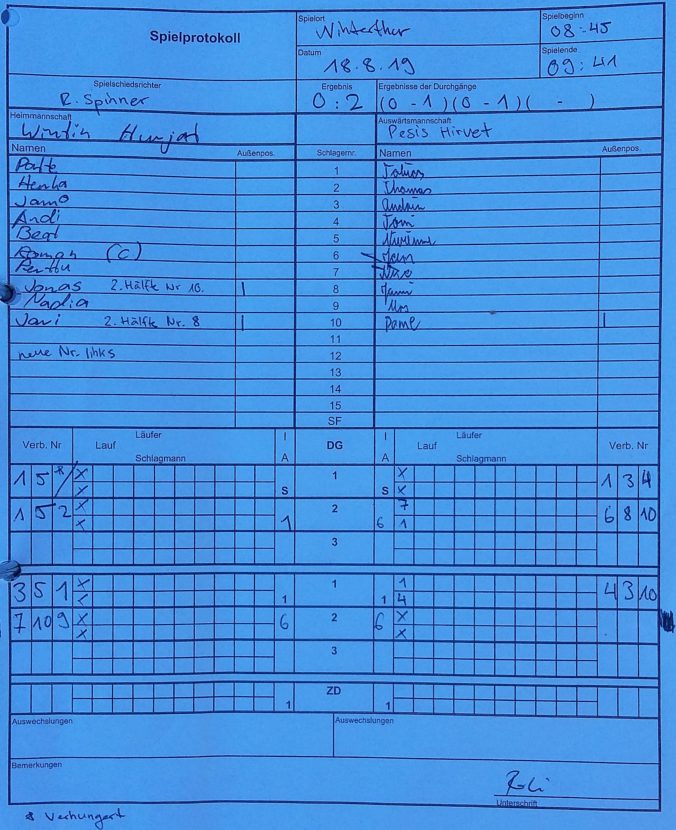 Spielprotokoll
Spielort
Winterthur
Spielbeginn
08:45
Datum
18.8.19
Spielende
09:41
Spielschiedsrichter
R. Spinner
Ergebnis
0:2
Ergebnisse der Durchgänge
(0 - 1)(0 - 1)( - )
Heimmannschaft
Auswärtsmannschaft
Pesis Hirvet
Namen Außenpos. Schlagernr. Namen Außenpos.
1
Henka 2 Thomas
3
Andi 4 Tomi
Beat 5
Roman (C) 6
7
Jonas 2. Hälfte Nr 10. | 8
Nadia 9
Javi 2. Hälfte Nr. 8 | 10 |
11
neue Nr. links 12
13
14
15
SF
Verb. Nr Läufer Lauf Schlagmann I A DG I A Läufer Lauf Schlagmann Verb. Nr
1 5 * x 1 x 1 3 4
x S S x
1 5 2 x 2 7 6 8 10
x 1 6 1
3
3 5 1 x 1 1 4 3 10
x 1 1 4
7 10 9 x 6 2 6 x
x x
3
ZD
1 1
Auswechslungen Auswechslungen
Bemerkungen
Unterschrift
* Verhungert